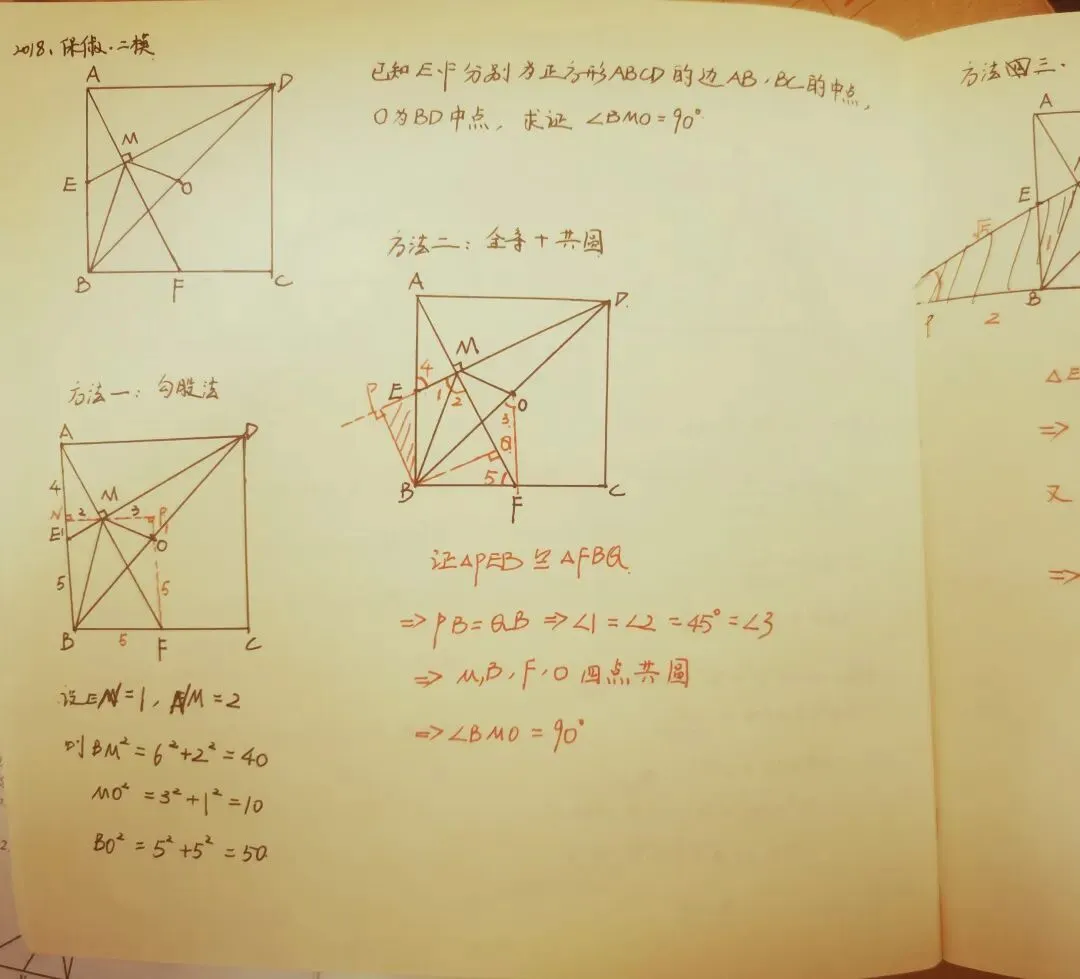 2018、保俶·二模
已知E、F分别为正方形ABCD的边AB、BC的中点,
O为BD中点, 求证 ∠BMO=90°
A
D
M
E
O
B
F
C
方法一: 勾股法
A
D
4
M
N
2
3
P
1
E
1
O
5
5
B
5
F
C
设EN=1, NM=2
则BM²=6²+2²=40
MO²=3²+1²=10
BO²=5²+5²=50
方法二: 全等+共圆
A
D
M
4
P
E
1
2
O
3
Q
B
5
F
C
证△PEB≌△FBQ
⇒PB=QB⇒∠1=∠2=45°=∠3
⇒M,B,F,O四点共圆
⇒∠BMO=90°
方法三.
A
E
√5
1
B
P
2
△E
⇒
又
⇒